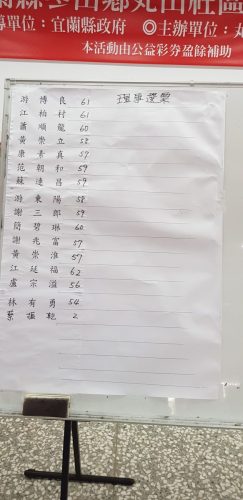 蘭縣冬山鄉丸山社區
導單位：宜蘭縣政府 ◎主辦單位：丸
本活動由公益彩券盈餘補助
理事選票
游博良 61
江柏村 61
蕭順龍 60
黃崇立 58
康素真 57
范朝和 59
蘇連昌 59
游東陽 58
謝三郎 59
簡碧琳 60
謝兆富 57
黃崇淮 57
江延福 62
盧宗溢 56
林有勇 54
蔡 2